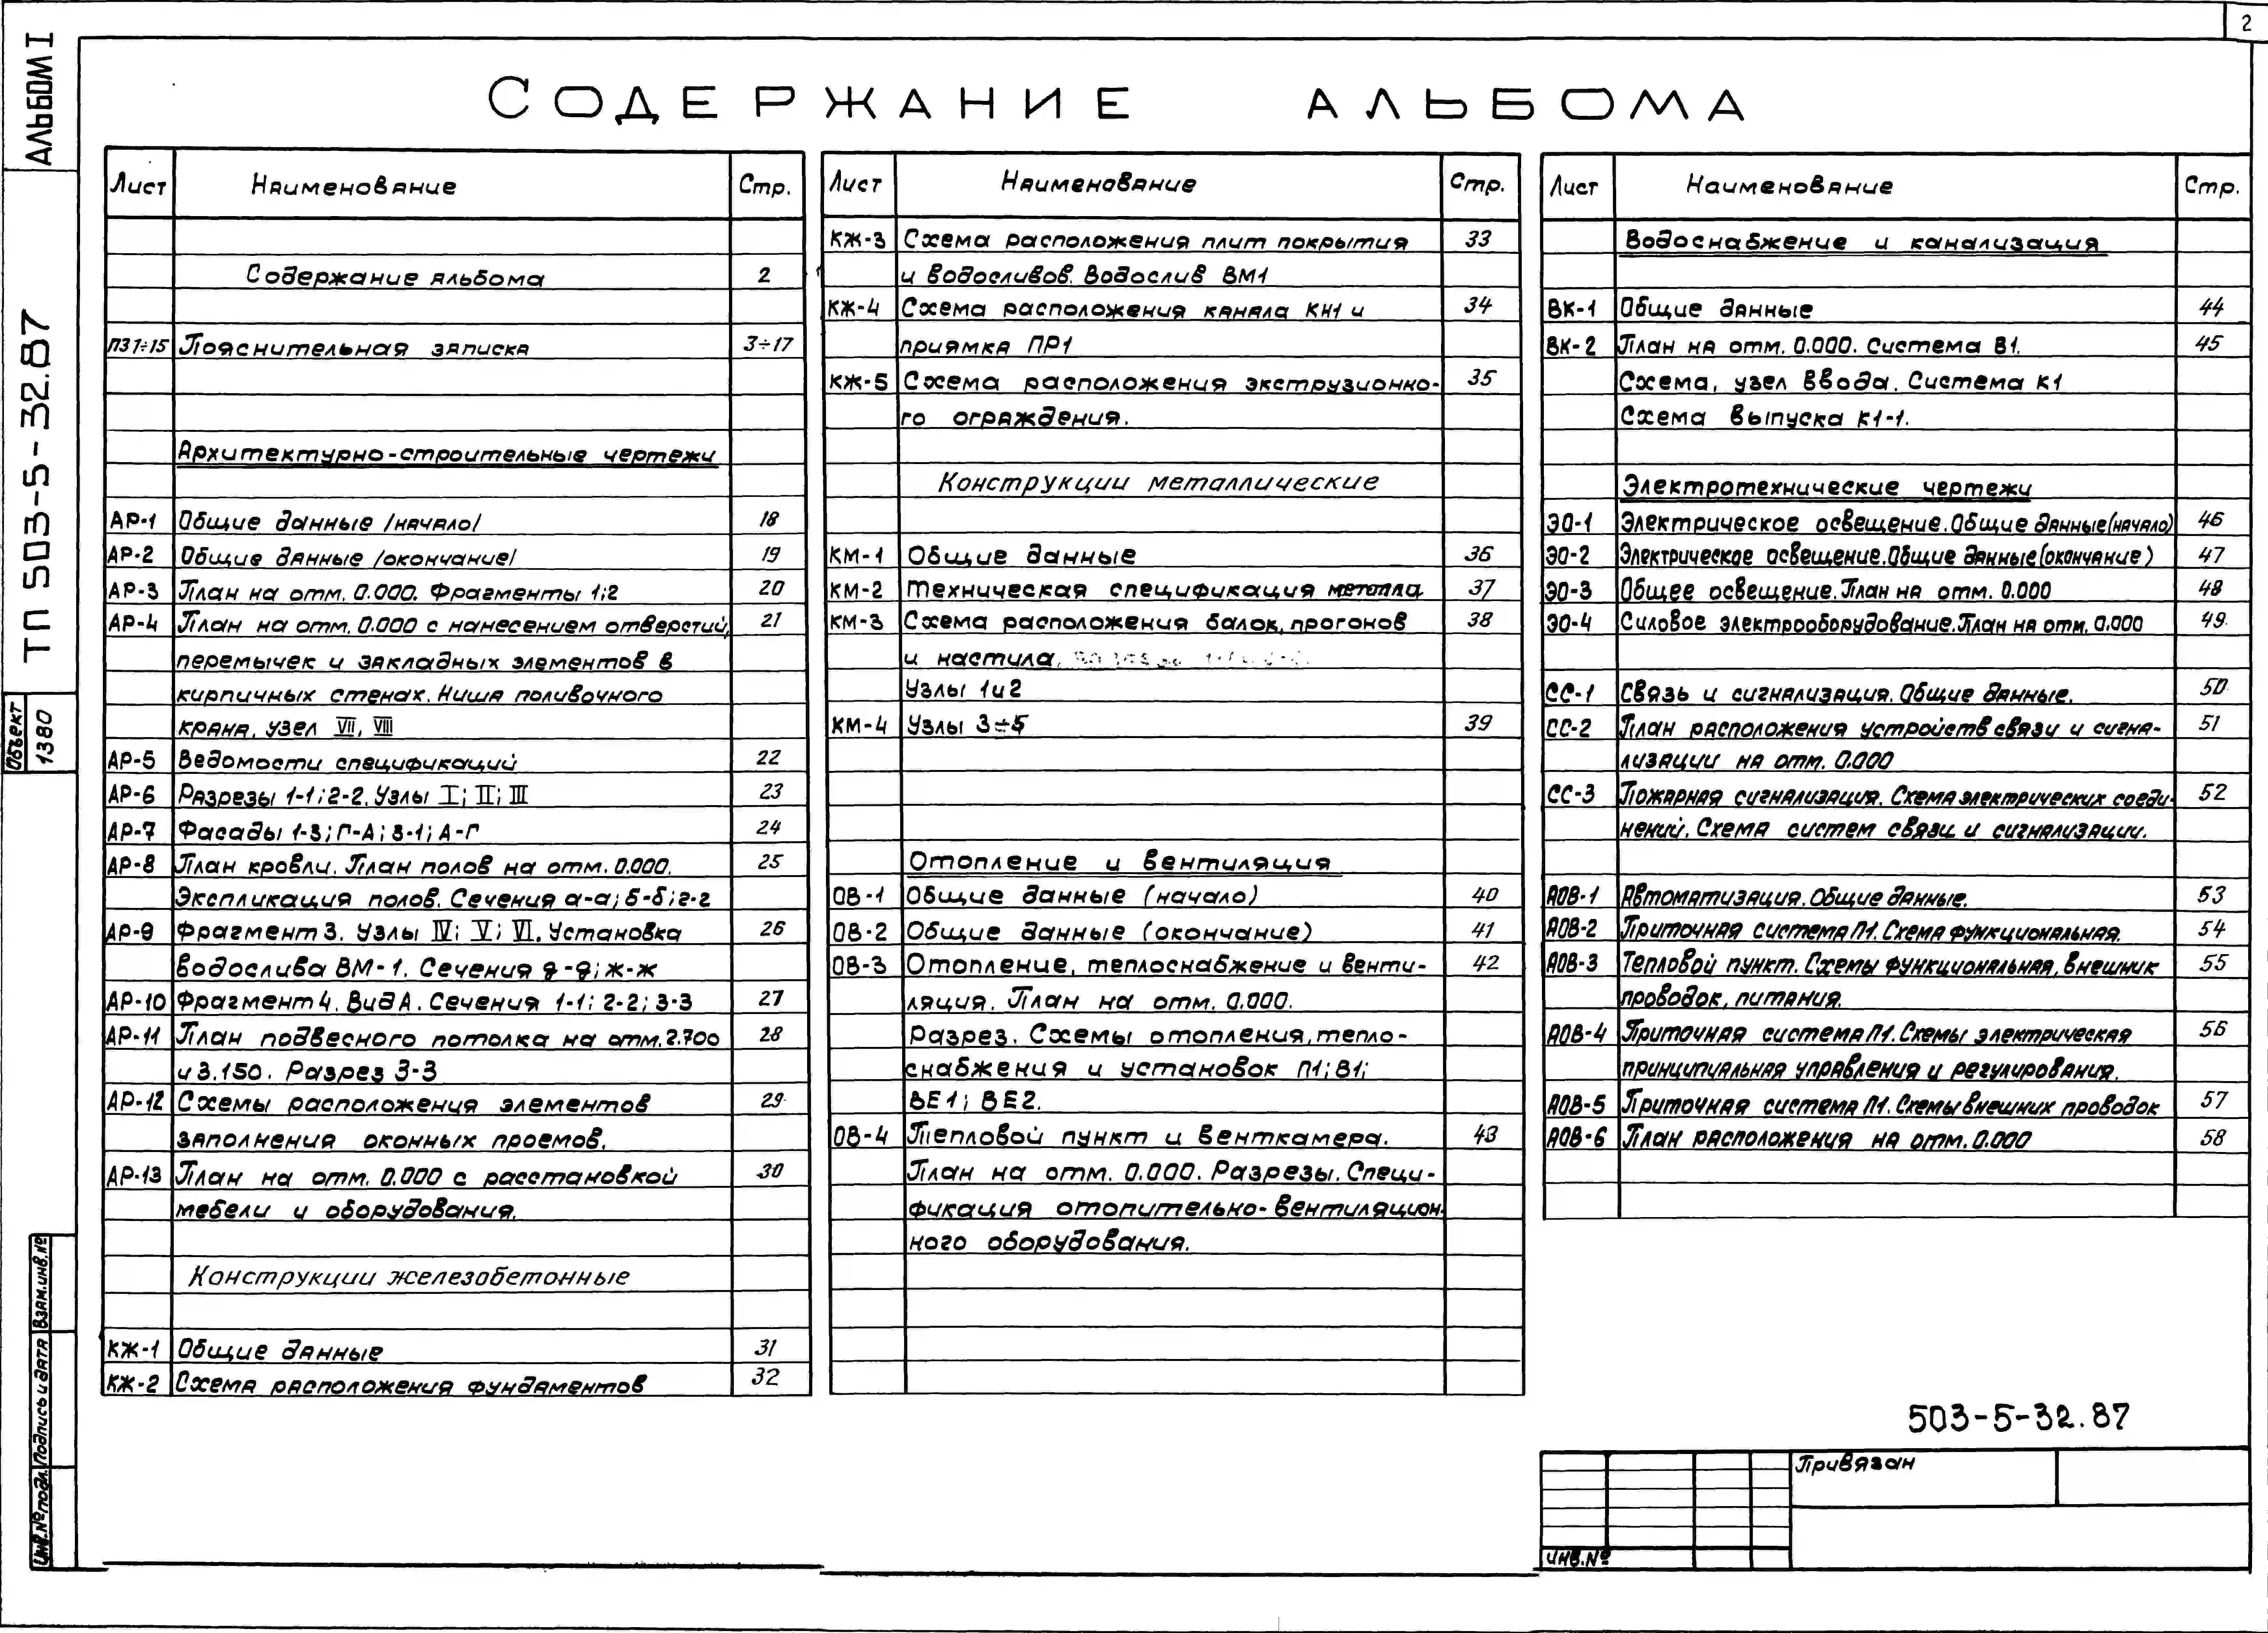 2
АЛЬБОМ I
ТП 503-5-32.87
Объект 1380
Взам.инв.№
Подпись и дата
Инв.№ подл.
СОДЕРЖАНИЕ АЛЬБОМА
Лист Наименование Стр.
Содержание альбома 2
ПЗ1÷15 Пояснительная записка 3÷17
Архитектурно-строительные чертежи
АР-1 Общие данные /начало/ 18
АР-2 Общие данные /окончание/ 19
АР-3 План на отм. 0.000. Фрагменты 1;2 20
АР-4 План на отм. 0.000 с нанесением отверстий, 21
перемычек и закладных элементов в
кирпичных стенах. Ниша поливочного
крана. узел VII, VIII
АР-5 Ведомости спецификаций 22
АР-6 Разрезы 1-1; 2-2. Узлы I; II; III 23
АР-7 Фасады 1-3; Г-А; 3-1; А-Г 24
АР-8 План кровли. План полов на отм. 0.000. 25
Экспликация полов. Сечения а-а; б-б; г-г
АР-9 Фрагмент 3. Узлы IV; V; VI. Установка 26
водослива ВМ-1. Сечения д-д; ж-ж
АР-10 Фрагмент 4. Вид А. Сечения 1-1; 2-2; 3-3 27
АР-11 План подвесного потолка на отм. 2.700 28
и 3.150. Разрез 3-3
АР-12 Схемы расположения элементов 29
заполнения оконных проемов.
АР-13 План на отм. 0.000 с расстановкой 30
мебели и оборудования.
Конструкции железобетонные
КЖ-1 Общие данные 31
КЖ-2 Схема расположения фундаментов 32
Лист Наименование Стр.
КЖ-3 Схема расположения плит покрытия 33
и водосливов. Водослив ВМ1
КЖ-4 Схема расположения канала КН1 и 34
приямка ПР1
КЖ-5 Схема расположения экструзионно- 35
го ограждения.
Конструкции металлические
КМ-1 Общие данные 36
КМ-2 Техническая спецификация металла 37
КМ-3 Схема расположения балок, прогонов 38
и настила.
Узлы 1 и 2
КМ-4 Узлы 3÷5 39
Отопление и вентиляция
ОВ-1 Общие данные (начало) 40
ОВ-2 Общие данные (окончание) 41
ОВ-3 Отопление, теплоснабжение и венти- 42
ляция. План на отм. 0.000.
Разрез. Схемы отопления, тепло-
снабжения и установок П1; В1;
ВЕ1; ВЕ2.
ОВ-4 Тепловой пункт и венткамера. 43
План на отм. 0.000. Разрезы. Специ-
фикация отопительно-вентиляцион-
ного оборудования.
Лист Наименование Стр.
Водоснабжение и канализация
ВК-1 Общие данные 44
ВК-2 План на отм. 0.000. Система В1. 45
Схема, узел ввода. Система К1
Схема выпуска К1-1.
Электротехнические чертежи
ЭО-1 Электрическое освещение. Общие данные (начало) 46
ЭО-2 Электрическое освещение. Общие данные (окончание) 47
ЭО-3 Общее освещение. План на отм. 0.000 48
ЭО-4 Силовое электрооборудование. План на отм. 0.000 49
СС-1 Связь и сигнализация. Общие данные. 50
СС-2 План расположения устройств связи и сигна- 51
лизации на отм. 0.000
СС-3 Пожарная сигнализация. Схема электрических соеди- 52
нений. Схема систем связи и сигнализации.
АОВ-1 Автоматизация. Общие данные. 53
АОВ-2 Приточная система П1. Схема функциональная. 54
АОВ-3 Тепловой пункт. Схемы функциональная, внешних 55
проводок, питания.
АОВ-4 Приточная система П1. Схемы электрическая 56
принципиальная управления и регулирования.
АОВ-5 Приточная система П1. Схемы внешних проводок 57
АОВ-6 План расположения на отм. 0.000 58
503-5-32.87
Привязан
Инв.№